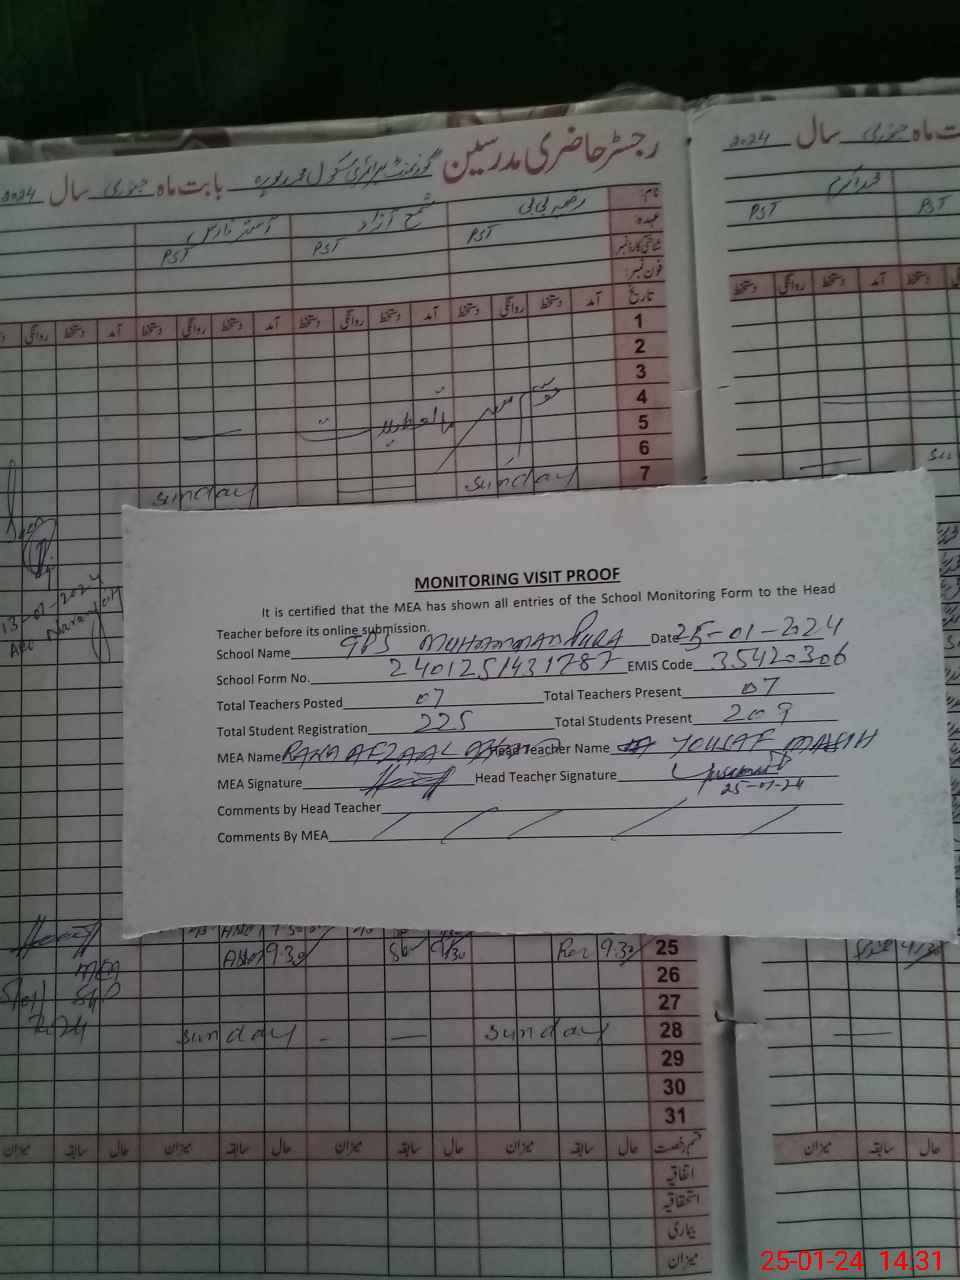 رجسٹر حاضری مدرسین گورنمنٹ پرائمری سکول محمد پورہ بابت ماہ جنوری سال 2024
بت ماہ جنوری سال 2024
نام:
عہدہ
شناختی کارڈ نمبر
فون نمبر:
شمع آزاد
PST
PST
PST
PST
PST
تاریخ آمد دستخط روانگی دستخط آمد دستخط روانگی دستخط آمد دستخط روانگی دستخط آمد دستخط روانگی
آمد دستخط روانگی دستخط
1
2
3
4
5
6
7
sunday
sunday
13-01-2024
MONITORING VISIT PROOF
It is certified that the MEA has shown all entries of the School Monitoring Form to the Head
Teacher before its online submission.
School Name GPS MUHAMMAD PURA Date 25-01-2024
School Form No. 2401251431787 EMIS Code 35420306
Total Teachers Posted 07 Total Teachers Present 07
Total Student Registration 225 Total Students Present 209
MEA Name RANA AFZAAL Head Teacher Name YOUSAF MASIH
MEA Signature Head Teacher Signature
25-01-24
Comments by Head Teacher
Comments By MEA
25
9.30
9/30
9.30
26
MEA
27
2024
28
sunday
sunday
29
30
31
قسم رخصت حال سابقہ میزان حال سابقہ میزان حال سابقہ میزان حال سابقہ میزان
حال سابقہ میزان
اتفاقیہ
استحقاقیہ
بیماری
میزان
25-01-24 14:31